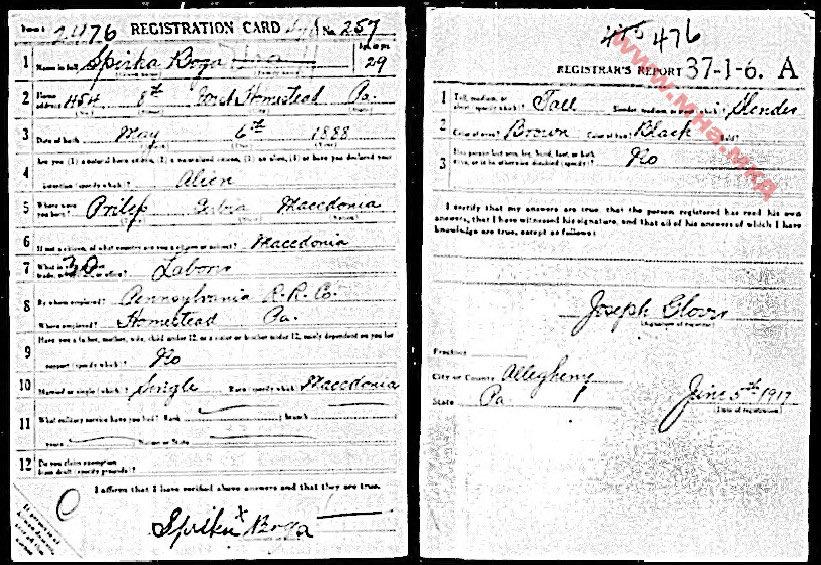 Form 1 2476 REGISTRATION CARD No. 257
1 Name in full Spirka Boga Age, in yrs. 29
2 Home address 454 8th West Homestead Pa.
3 Date of birth May 6th 1888
Are you (1) a natural born citizen, (2) a naturalized citizen, (3) an alien, (4) or have you declared your
4 intention (specify which)? Alien
5 Where were you born? Prilep Serbia Macedonia
6 If not a citizen, of what country are you a citizen or subject? Macedonia
7 What is your 30 Labor
8 By whom employed? Pennsylvania R.R. Co.
Where employed? Homestead Pa.
Have you a father, mother, wife, child under 12, or a sister or brother under 12, solely dependent on you for
9 support (specify which)? No
10 Married or single (which)? Single Race (specify which)? Macedonia
11 What military service have you had? Rank branch
years Nation or State
12 Do you claim exemption from draft (specify grounds)?
I affirm that I have verified above answers and that they are true.
Spirka x Boga
476
REGISTRAR'S REPORT 37-1-6. A
1 Tall, medium, or short (specify which)? Tall Slender, medium, or stout (which)? Slender
2 Color of eyes? Brown Color of hair? Black Bald?
3 Has person lost arm, leg, hand, foot, or both eyes, or is he otherwise disabled (specify)? No
I certify that my answers are true, that the person registered has read his own
answers, that I have witnessed his signature, and that all of his answers of which I have
knowledge are true, except as follows:
Joseph Glover
(Signature of registrar)
Precinct
City or County Allegheny
State Pa.
June 5th 1917
(Date of registration)
www.MHa.MKA